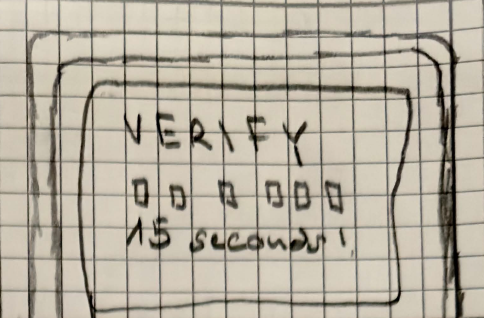 VERIFY
▯ ▯ ▯ ▯ ▯ ▯
15 seconds!